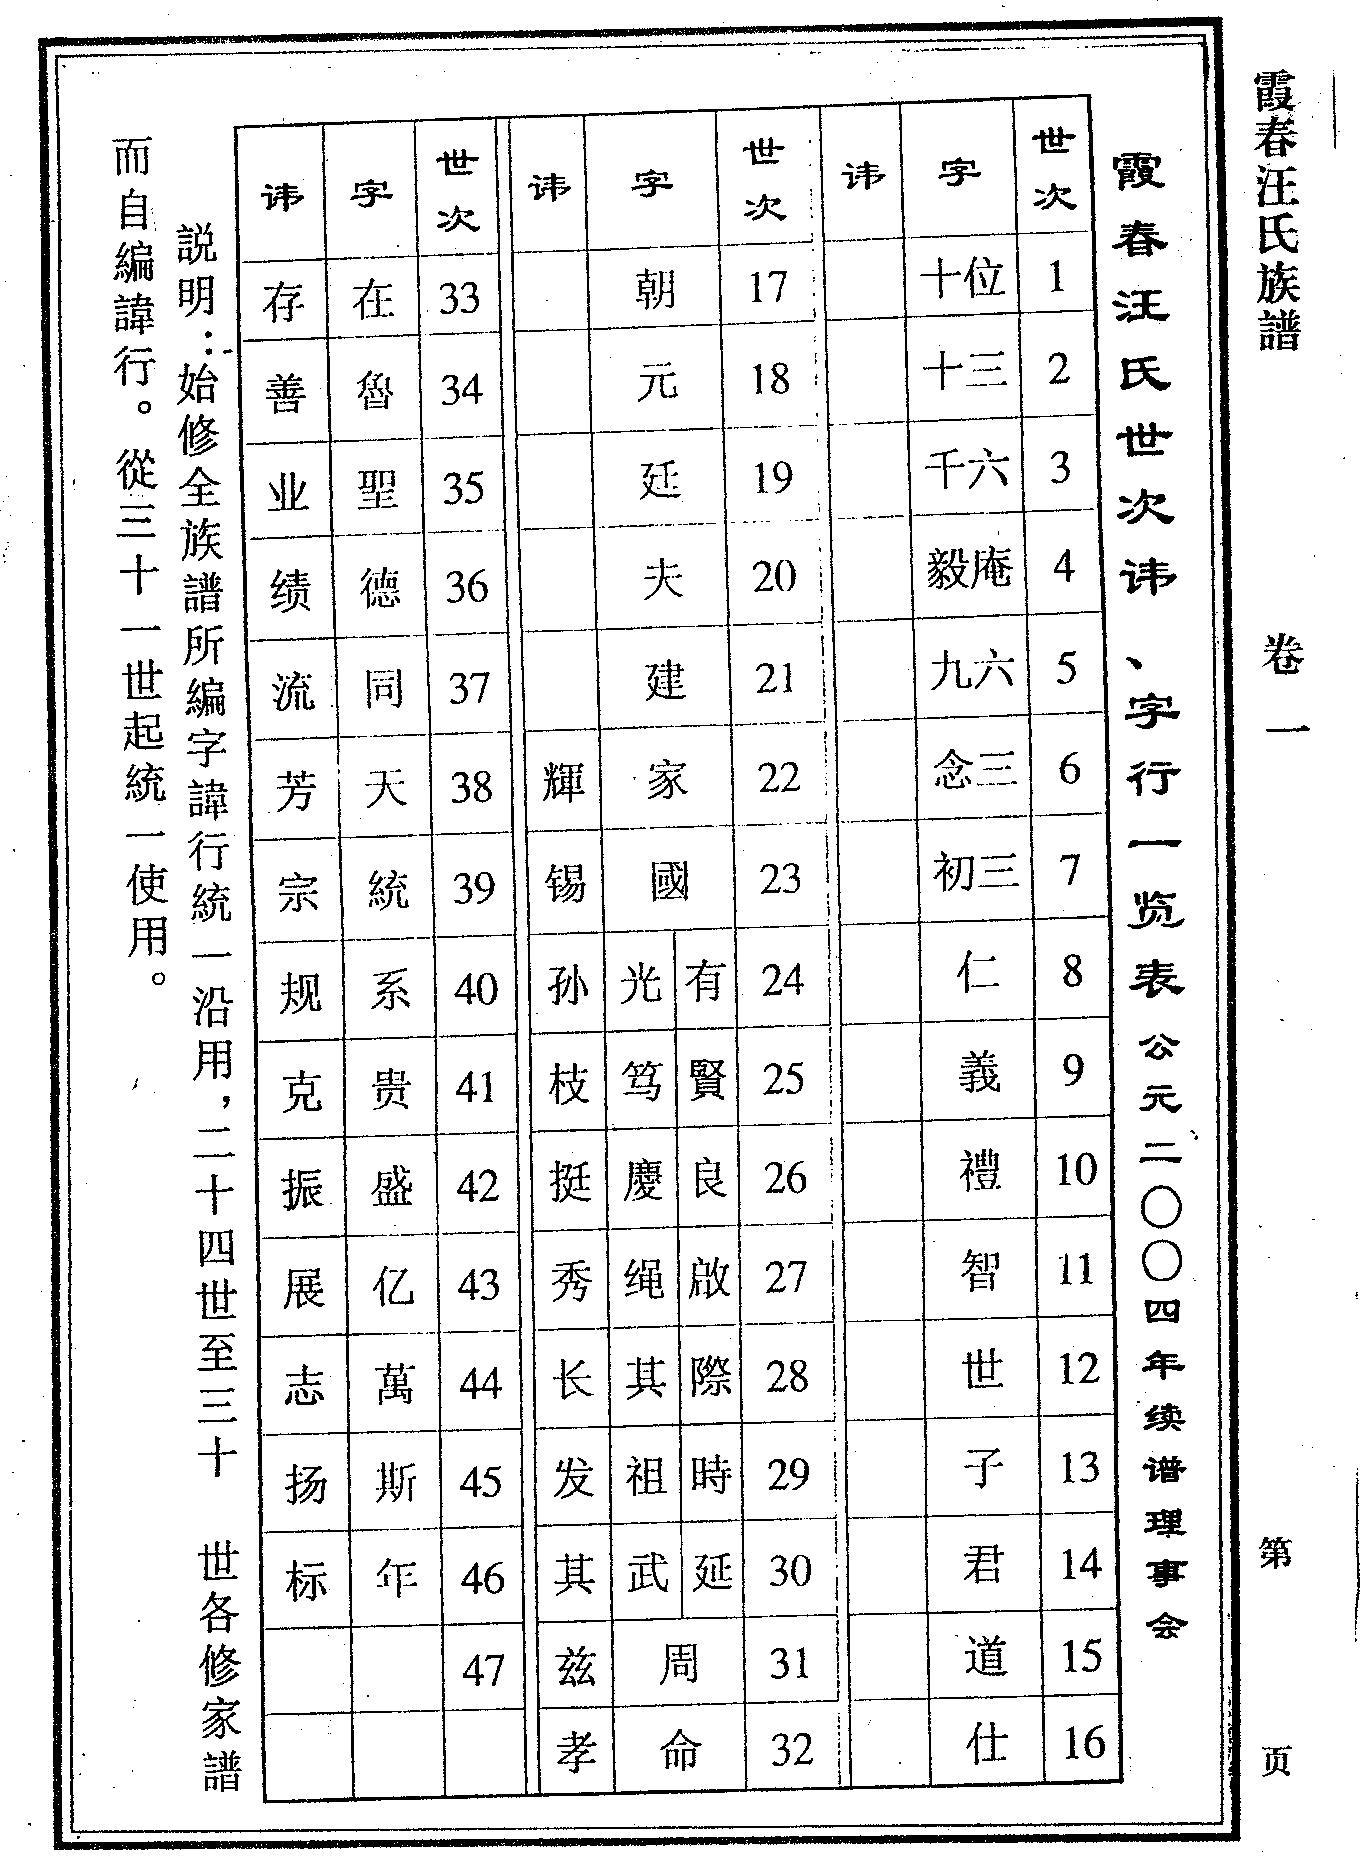 霞春汪氏族譜
卷一
第
页
霞春汪氏世次讳、字行一览表 公元二〇〇四年续谱理事会
世次 字 讳
1 十位
2 十三
3 千六
4 毅庵
5 九六
6 念三
7 初三
8 仁
9 義
10 禮
11 智
12 世
13 子
14 君
15 道
16 仕
世次 字 讳
17 朝
18 元
19 廷
20 夫
21 建
22 家 輝
23 國 锡
24 有 光 孙
25 賢 笃 枝
26 良 慶 挺
27 啟 绳 秀
28 際 其 长
29 時 祖 发
30 延 武 其
31 周 兹
32 命 孝
世次 字 讳
33 在 存
34 魯 善
35 聖 业
36 德 绩
37 同 流
38 天 芳
39 統 宗
40 系 规
41 贵 克
42 盛 振
43 亿 展
44 萬 志
45 斯 扬
46 年 标
47
説明：始修全族譜所編字諱行統一沿用，二十四世至三十 世各修家譜
而自編諱行。從三十一世起統一使用。